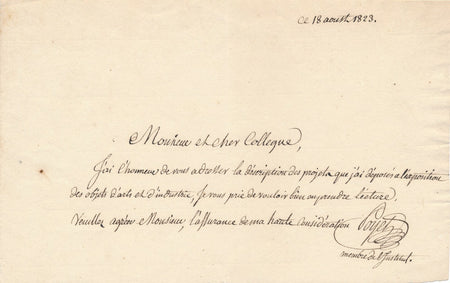 ce 18 aoust 1823.
Monsieur et cher Collegue,
J'ai l'honneur de vous adresser la description des projets que j'ai deposés a l'exposition
des objets d'arts et d'industrie, Je vous prie de vouloir bien en prendre lecture.
Veuillez agréer Monsieur, l'assurance de ma haute considération Poyet
membre de l'Institut.